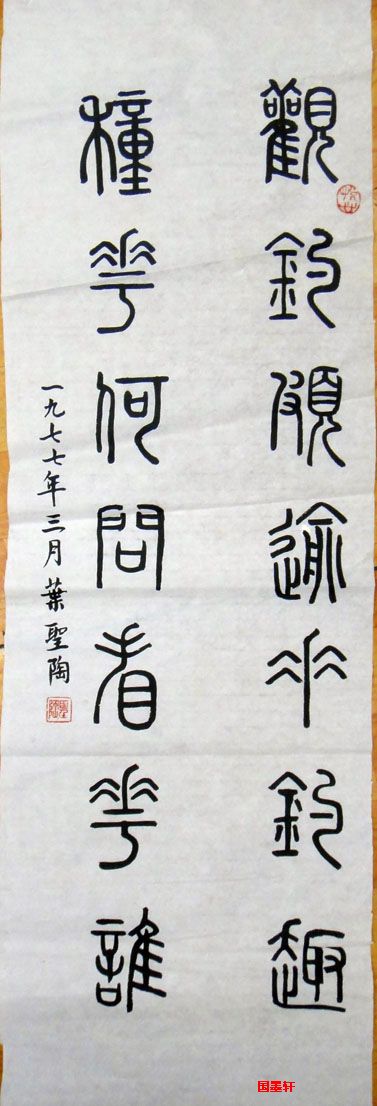 觀釣頗逾垂釣趣
種花何問看花誰
一九七七年三月葉聖陶
聖陶
国墨轩